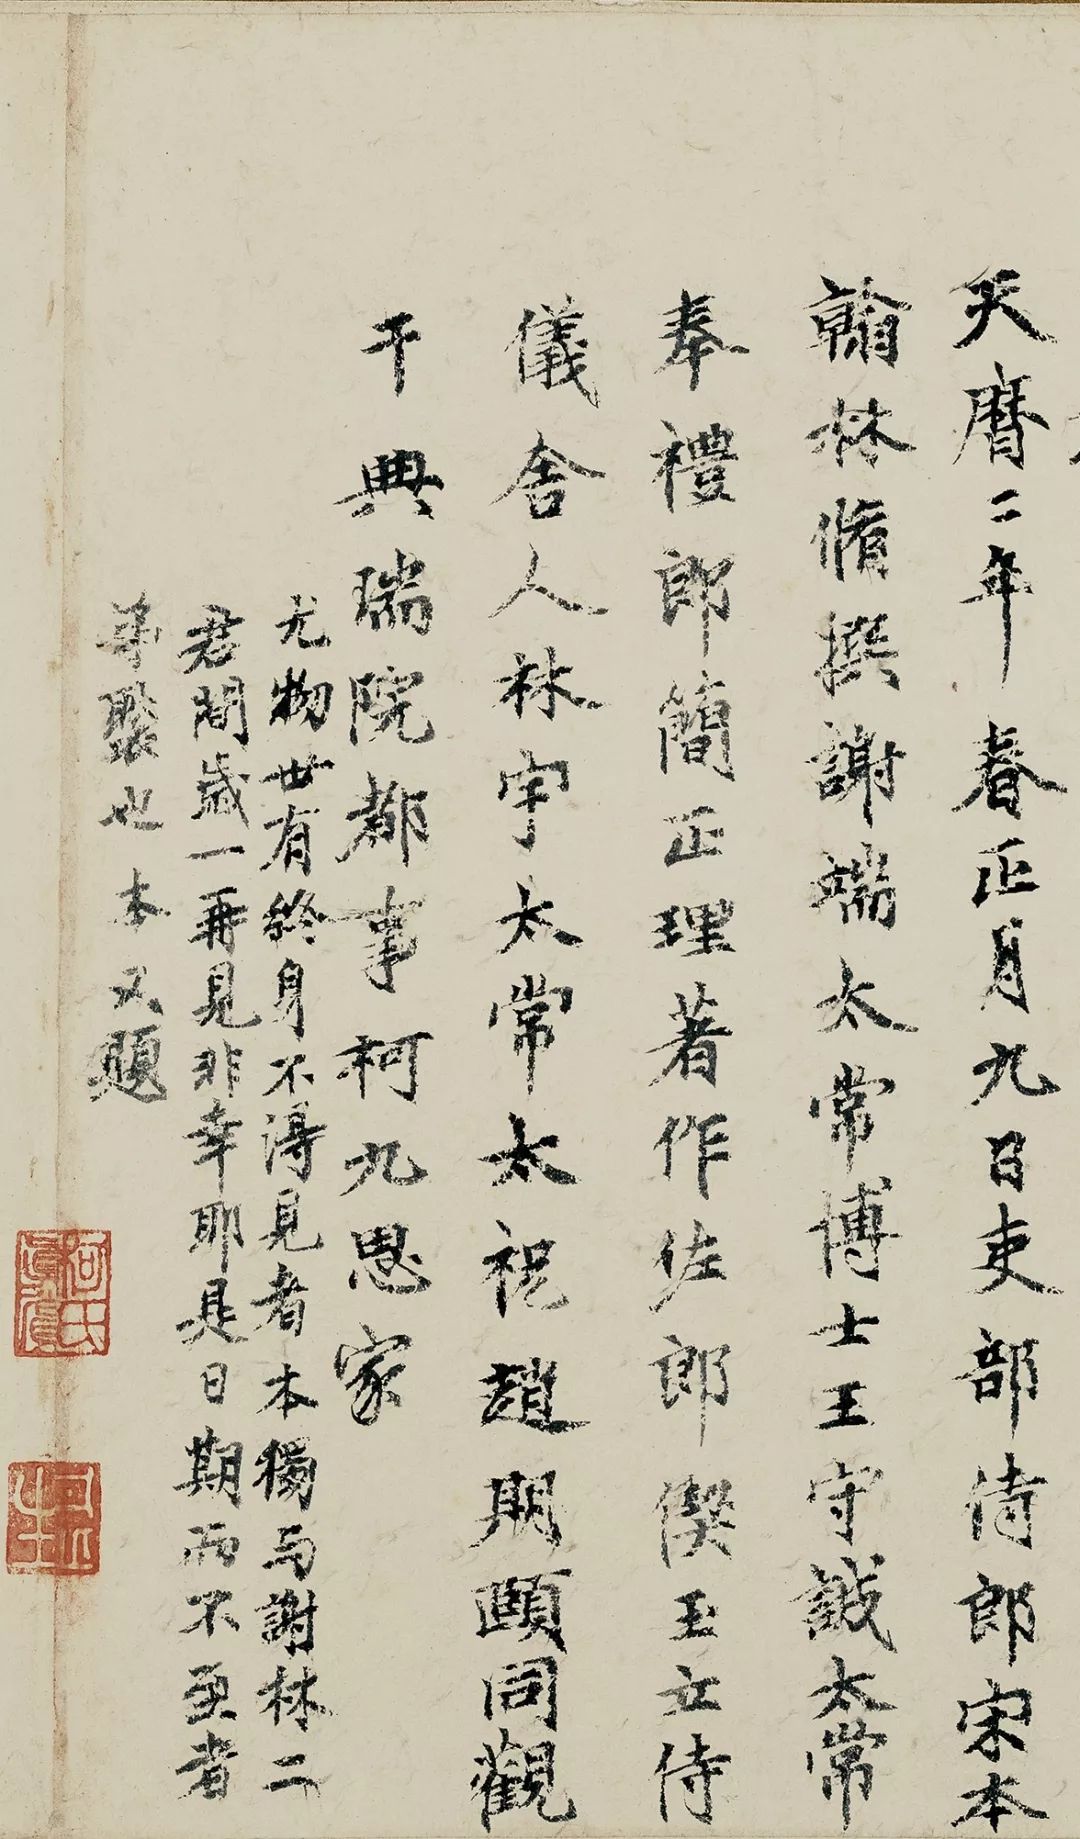 天曆二年春正月九日吏部侍郎宋本
翰林脩撰謝端太常博士王守誠太常
奉禮郎簡正理著作佐郎偰玉立侍
儀舍人林宇太常太祝趙期頤同觀
于典瑞院都事柯九思家
尤物世有終身不得見者本獨与謝林二
君間歲一再見非幸耶是日期而不至者
弟褧也本又題
柯氏真賞